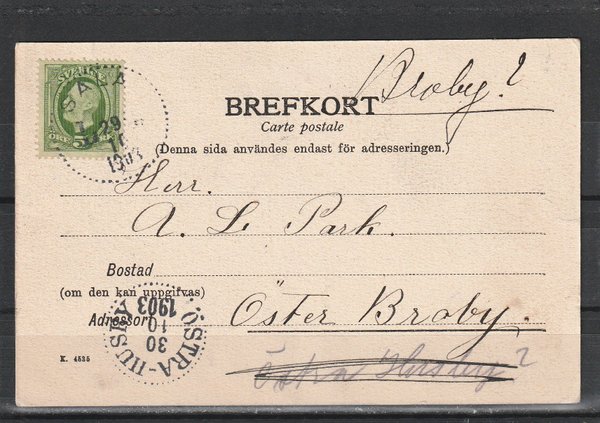 SVERIGE
SALA
29
10
1903
Broby?
BREFKORT
Carte postale
(Denna sida användes endast för adresseringen.)
Herr.
A. L. Park.
Bostad
(om den kan uppgifvas)
Adressort
Öster Broby.
Östra Husby?
ÖSTRA-HUSBY
30
10
1903
K. 4535